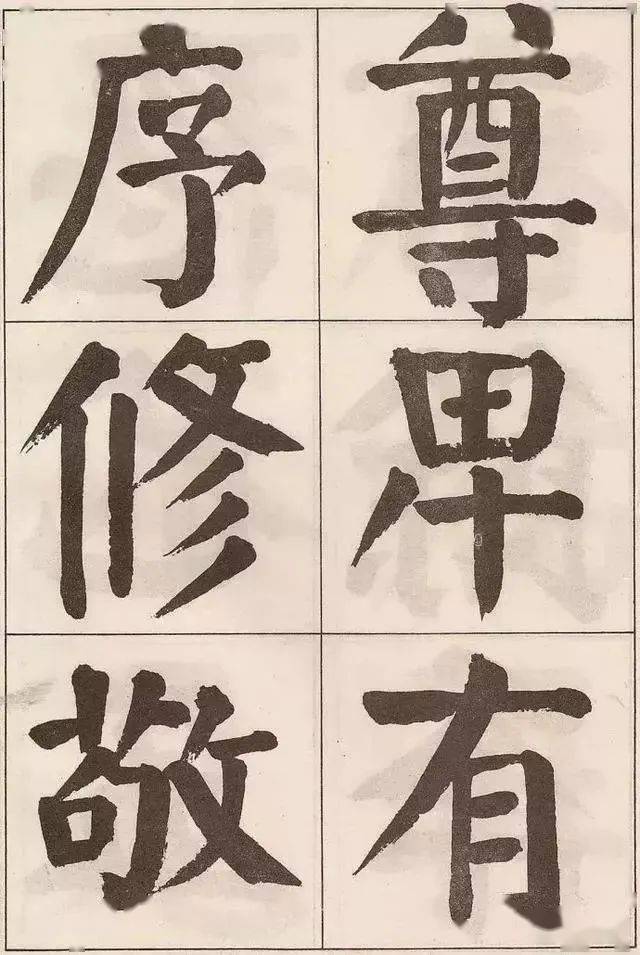 尊卑有
序修敬